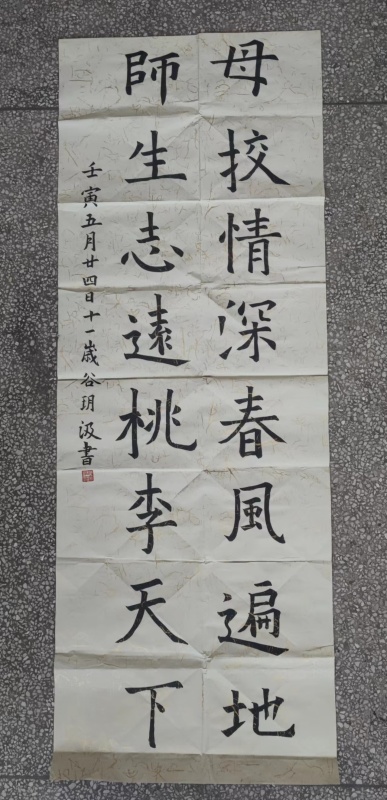 母挍情深春風遍地
師生志遠桃李天下
壬寅五月廿四日十一歲谷玥汲書